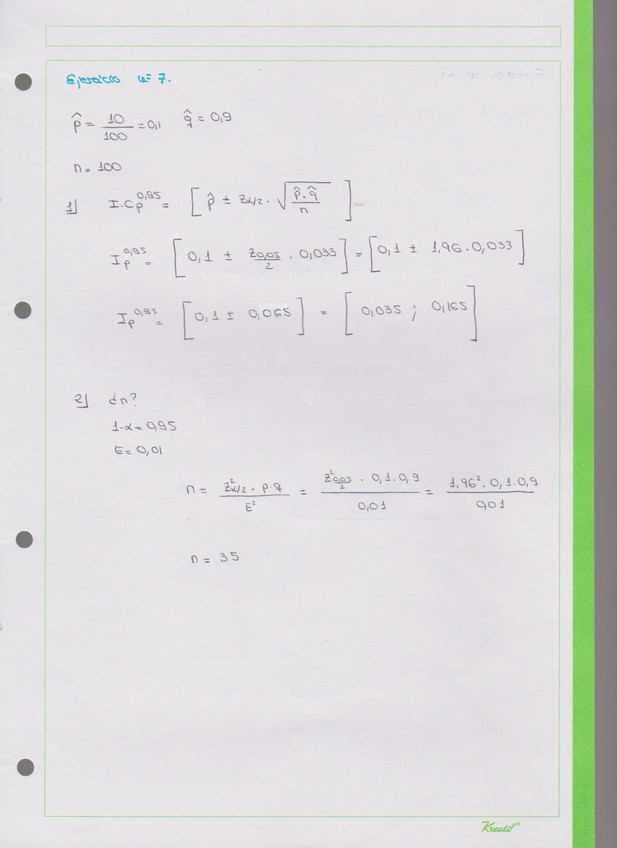 Ejercicio nº 7.
p̂ = 10/100 = 0,1 q̂ = 0,9
n = 100
1] I.Cp^0,95 = [ p̂ ± zα/2 · √(p̂·q̂/n) ]
Ip^0,95 = [ 0,1 ± z0,05/2 · 0,033 ] = [ 0,1 ± 1,96 · 0,033 ]
Ip^0,95 = [ 0,1 ± 0,065 ] = [ 0,035 ; 0,165 ]
2] ¿n?
1-α = 0,95
E = 0,01
n = z²α/2 · p·q / E² = z²0,05/2 · 0,1·0,9 / 0,01 = 1,96² · 0,1·0,9 / 0,01
n = 35
Kreatif